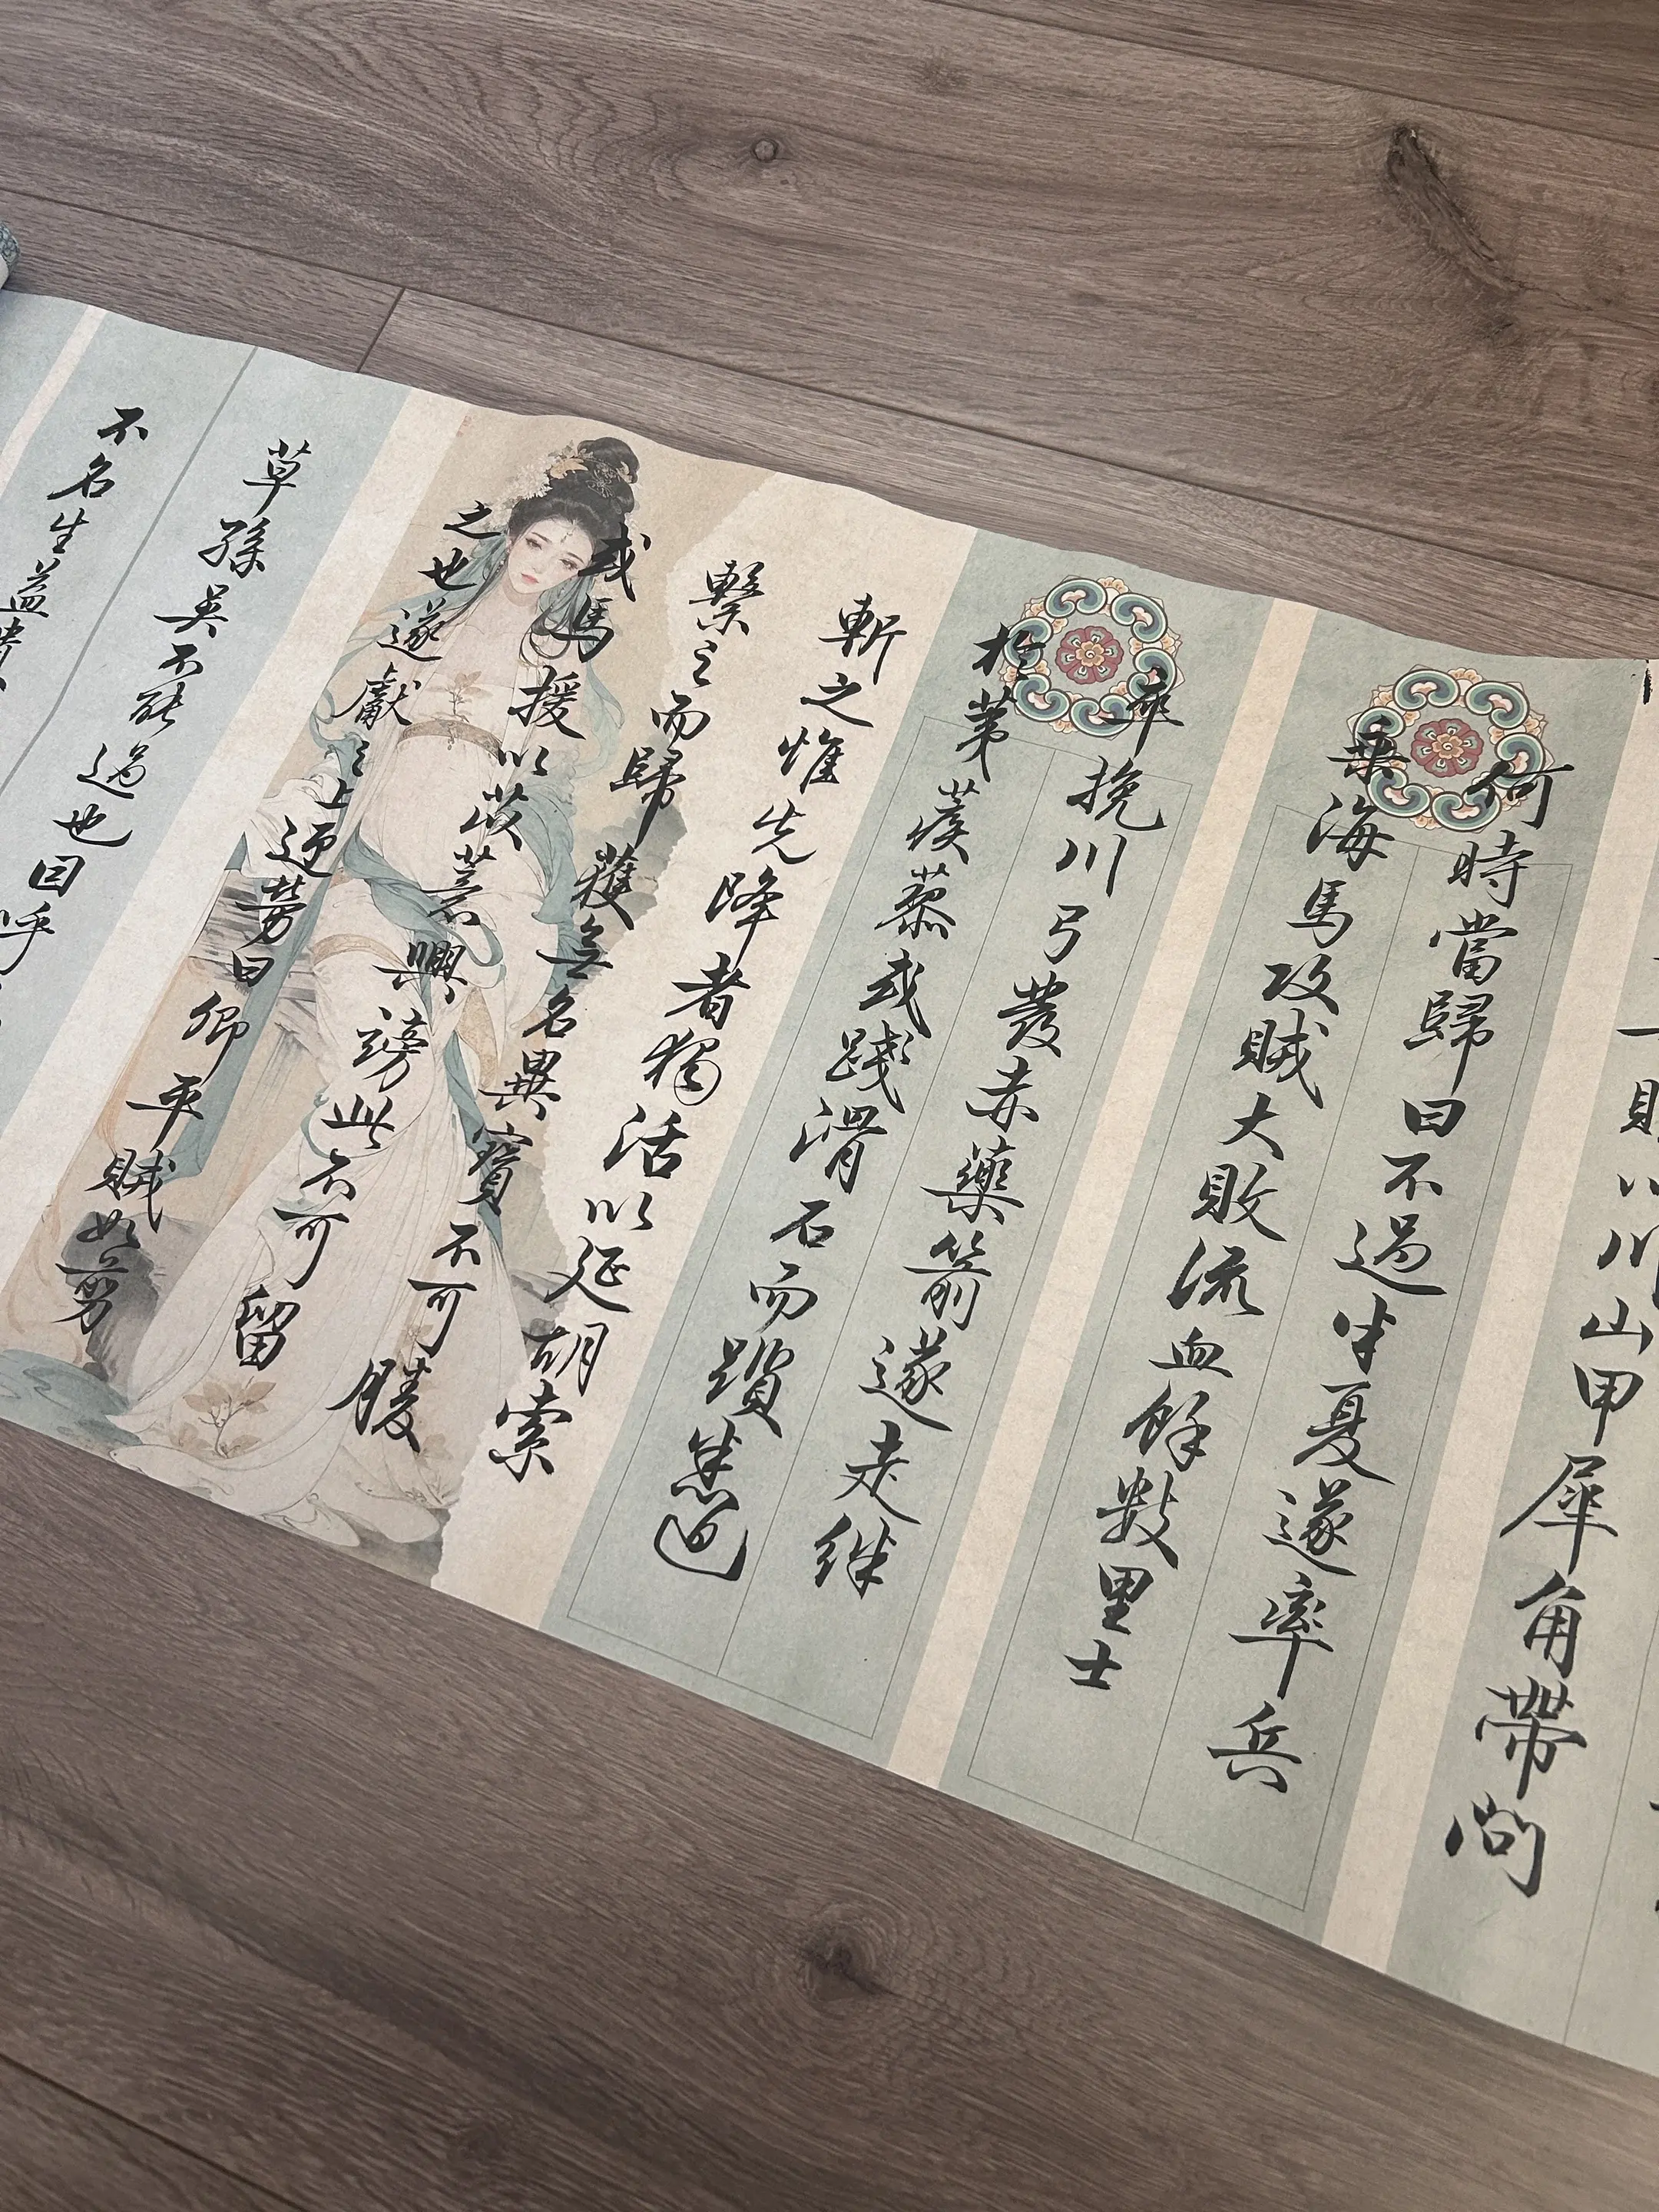 川山甲犀角帶問
何時當歸曰不過半夏遂率兵
乘海馬攻賊大敗流血餘數里士
卒挽川弓發赤藥箭遂走絆
於茅蒺藜或踐滑石而躓悉追
斬之惟先降者獨活以延胡索
繫之而歸獲無名異寶不可勝
或馬援以苡薏興謗此不可留
之也遂獻之上迎勞曰卿平賊如剪
草孫吳不能過也因呼
不名生益貴